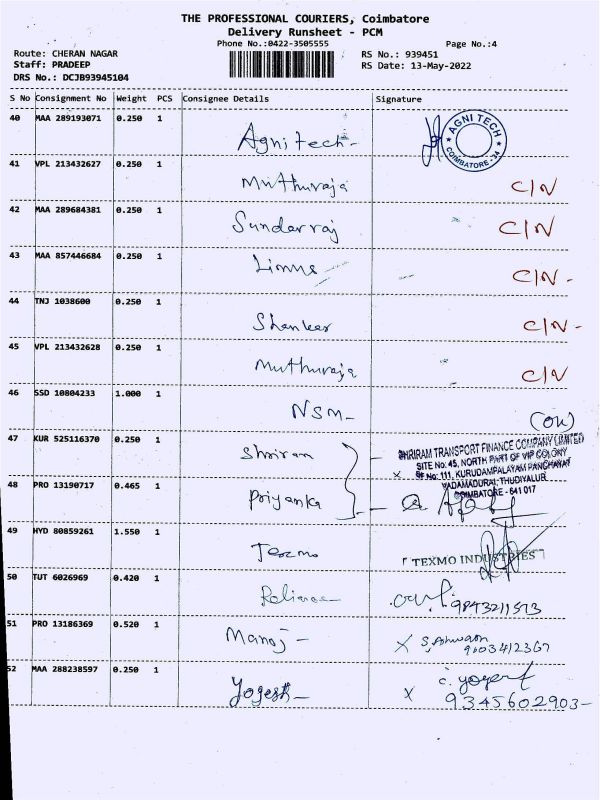 THE PROFESSIONAL COURIERS, Coimbatore
Delivery Runsheet - PCM
Phone No.:0422-3505555
Page No.:4
Route: CHERAN NAGAR
RS No.: 939451
Staff: PRADEEP
RS Date: 13-May-2022
DRS No.: DCJB93945104
S No Consignment No Weight PCS Consignee Details Signature
40 MAA 289193071 0.250 1 Agnitech-
AGNI TECH
COIMBATORE-34
41 VPL 213432627 0.250 1 Muthuraja C/N
42 MAA 289684381 0.250 1 Sundarraj C/N
43 MAA 857446684 0.250 1 Linus C/N -
44 TNJ 1038600 0.250 1 Shankar C/N -
45 VPL 213432628 0.250 1 Muthuraja C/N
46 SSD 10804233 1.000 1 NSM-
47 KUR 525116370 0.250 1 Shriram
SHRIRAM TRANSPORT FINANCE COMPANY LIMITED
SITE No: 45, NORTH PART OF VIP COLONY
SF No: 111, KURUDAMPALAYAM PANCHAYAT
VADAMADURAI, THUDIYALUR
COIMBATORE - 641 017
48 PRO 13190717 0.465 1 Priyanka
49 HYD 80859261 1.550 1 Texmo
TEXMO INDUSTRIES
50 TUT 6026969 0.420 1 Reliance 9843211573
51 PRO 13186369 0.520 1 Manoj - X S. Ashwath
9003412367
52 MAA 288238597 0.250 1 Yogesh- X C. yogesh
9345602903-